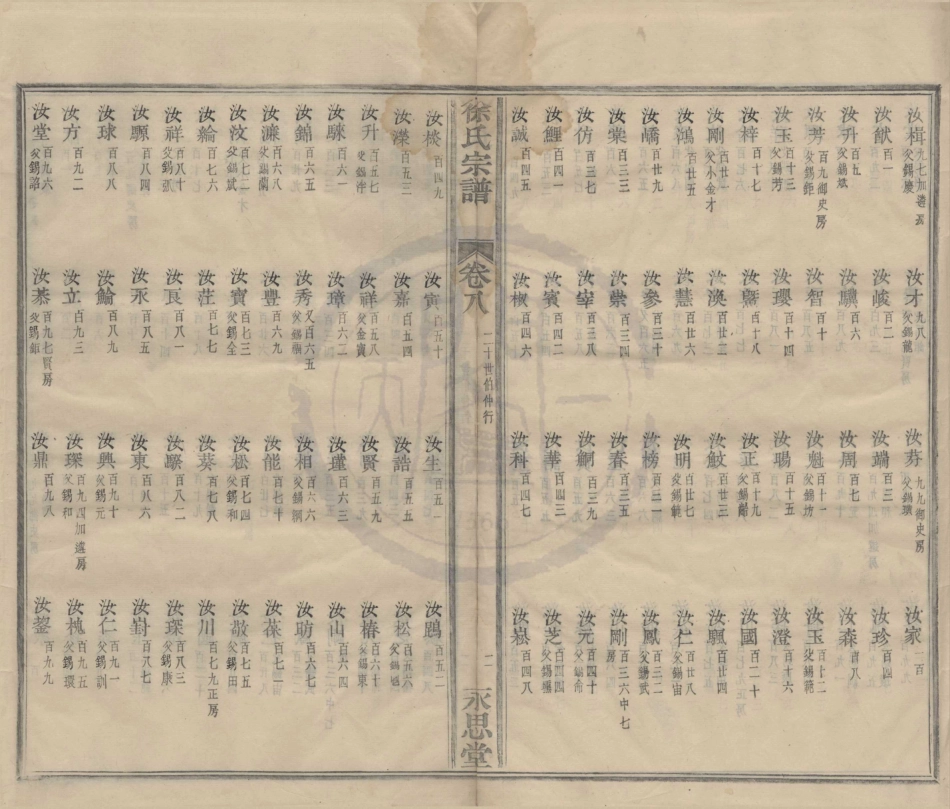 汝楫 九七加遠 父錫慶 汝才 九八 父錫龍 汝芬 九九御史房 父錫璜 汝家 一百
汝猷 百一 汝峻 百二 汝端 百三 汝珍 百四
汝升 百五 父錫斌 汝驥 百六 汝周 百七 汝森 百八
汝芳 百九御史房 父錫鉅 汝智 百十 汝魁 百十一 父錫坊 汝玉 百十二 父錫
汝玉 百十三 父錫芳 汝瓔 百十四 汝鳴 百十五 汝澄 百十六
汝梓 百十七 汝燾 百十八 汝正 百十九 父錫齡 汝國 百二十
汝剛 父小金才 汝渙 百廿二 汝蛟 百廿三 汝颿 百廿四
汝鴻 百廿五 汝慧 百廿六 汝明 百廿七 父錫範 汝仁 百廿八 父錫宙
汝嶠 百廿九 汝參 百三十 汝榜 百三一 汝鳳 百三二 父錫武
汝棠 百三三 汝崇 百三四 汝春 百三五 汝剛 百三六中七房
汝仿 百三七 汝宰 百三八 汝鯛 百三九 汝元 百四十 父錫命
汝鯉 百四一 汝賓 百四二 汝華 百四三 汝芝 百四四 父錫
汝誠 百四五 汝椒 百四六 汝科 百四七 汝崧 百四八
徐氏宗譜 卷八 二十世伯仲行 二 永思堂
汝棪 百四九 汝寅 百五十 汝生 百五一 汝鵾 百五二
汝濼 百五三 汝嘉 百五四 汝誥 百五五 汝松 百五六 父錫
汝升 百五七 父錫 汝祥 百五八 父金寶 汝賢 百五九 汝椿 百六十 父錫東
汝騋 百六一 汝璋 百六二 汝瑾 百六三 汝山 百六四
汝錦 百六五 汝秀 又百六五 父錫 汝相 百六六 父錫綱 汝昉 百六七
汝濂 百六八 父錫蘭 汝豐 百六九 汝能 百七十 汝葆 百七一
汝汶 百七二 父錫斌 汝寶 百七三 父錫全 汝松 百七四 父錫和 汝敬 百七五 父錫田
汝綸 百七六 汝莊 百七七 汝葵 百七八 汝川 百七九正房
汝祥 百八十 父錫 汝良 百八一 汝驂 百八二 汝琛 百八三 父錫康
汝騵 百八四 汝永 百八五 汝東 百八六 汝對 百八七
汝球 百八八 汝鯩 百八九 汝興 百九十 父錫元 汝仁 百九一 父錫訓
汝方 百九二 汝立 百九三 汝琛 百九四加遠房 父錫和 汝槐 百九五 父錫環
汝堂 百九六 父錫韶 汝泰 百九七貢房 父錫鉅 汝鼎 百九八 汝鋆 百九九